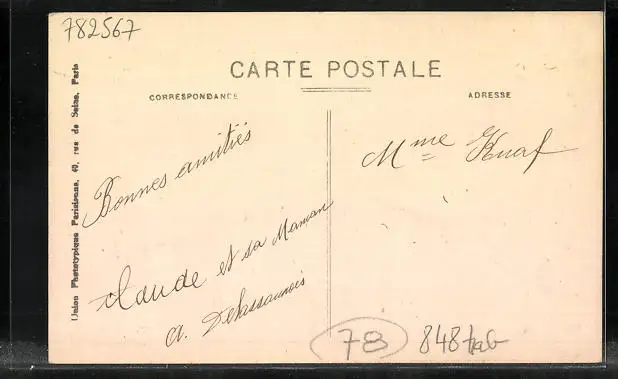 782567
CARTE POSTALE
CORRESPONDANCE
ADRESSE
Union Phototypique Parisienne, 49, rue de Seine, Paris
Bonnes amitiés
Mme Knaf
Claude et sa Maman
A. Delassaunois
78
848